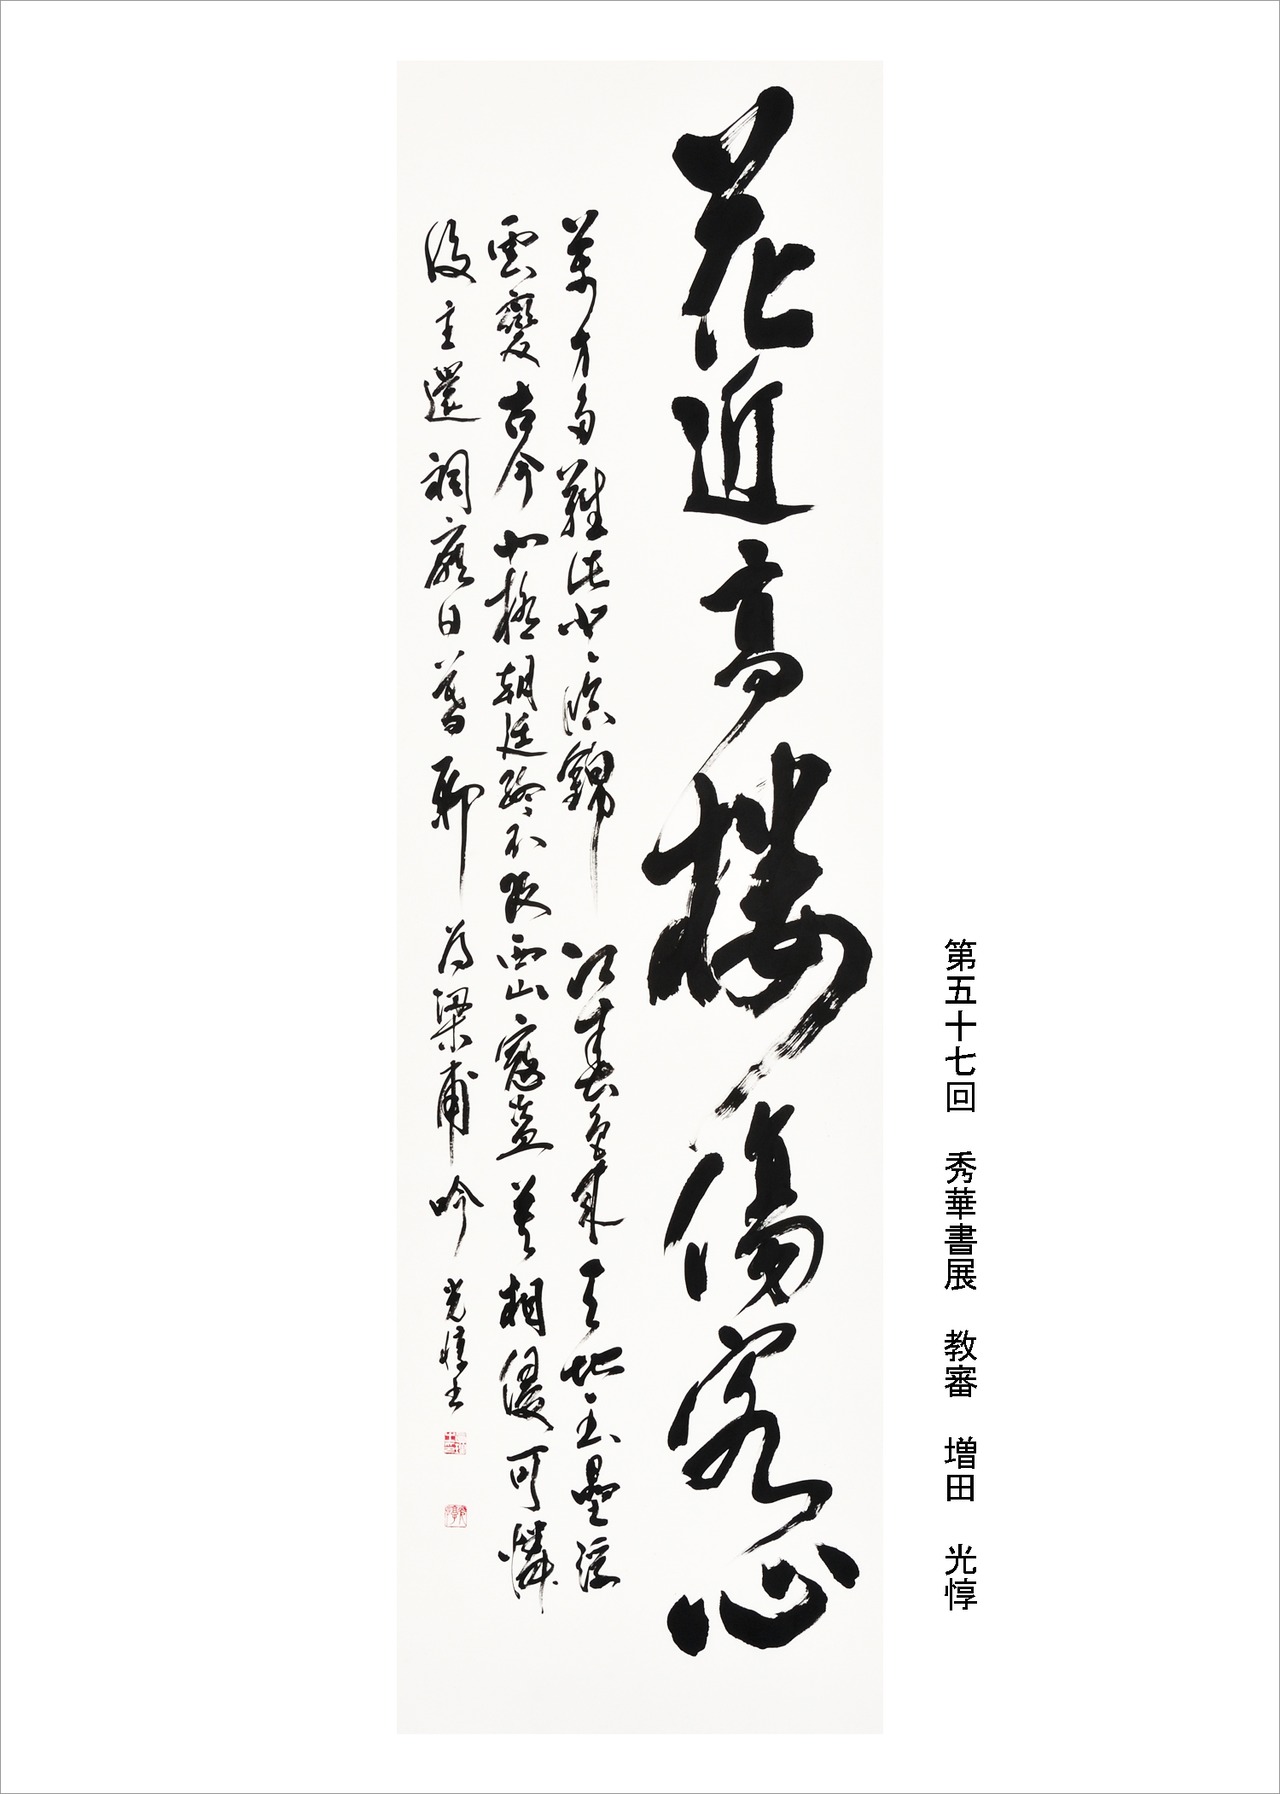 第五十七回 秀華書展 教審 増田 光惇
花近高樓傷客心
萬方多難此登臨錦江春色來天地玉壘浮
雲變古今北極朝廷終不改西山寇盗莫相侵可憐
後主還祠廟日暮聊為梁甫吟 光惇書